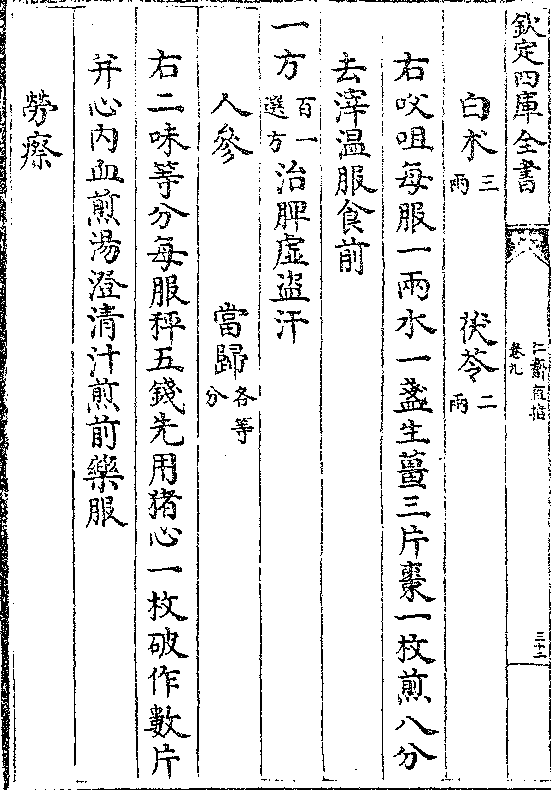 欽定四庫全書
仁齋直指
卷九
三十二
白朮三兩 茯苓二兩
右㕮咀每服一兩水一盞生薑三片棗一枚煎八分
去滓温服食前
一方百一選方治脾虚盗汗
人參 當歸各等分
右二味等分每服秤五錢先用猪心一枚破作數片
并心内血煎湯澄清汁煎前藥服
勞瘵